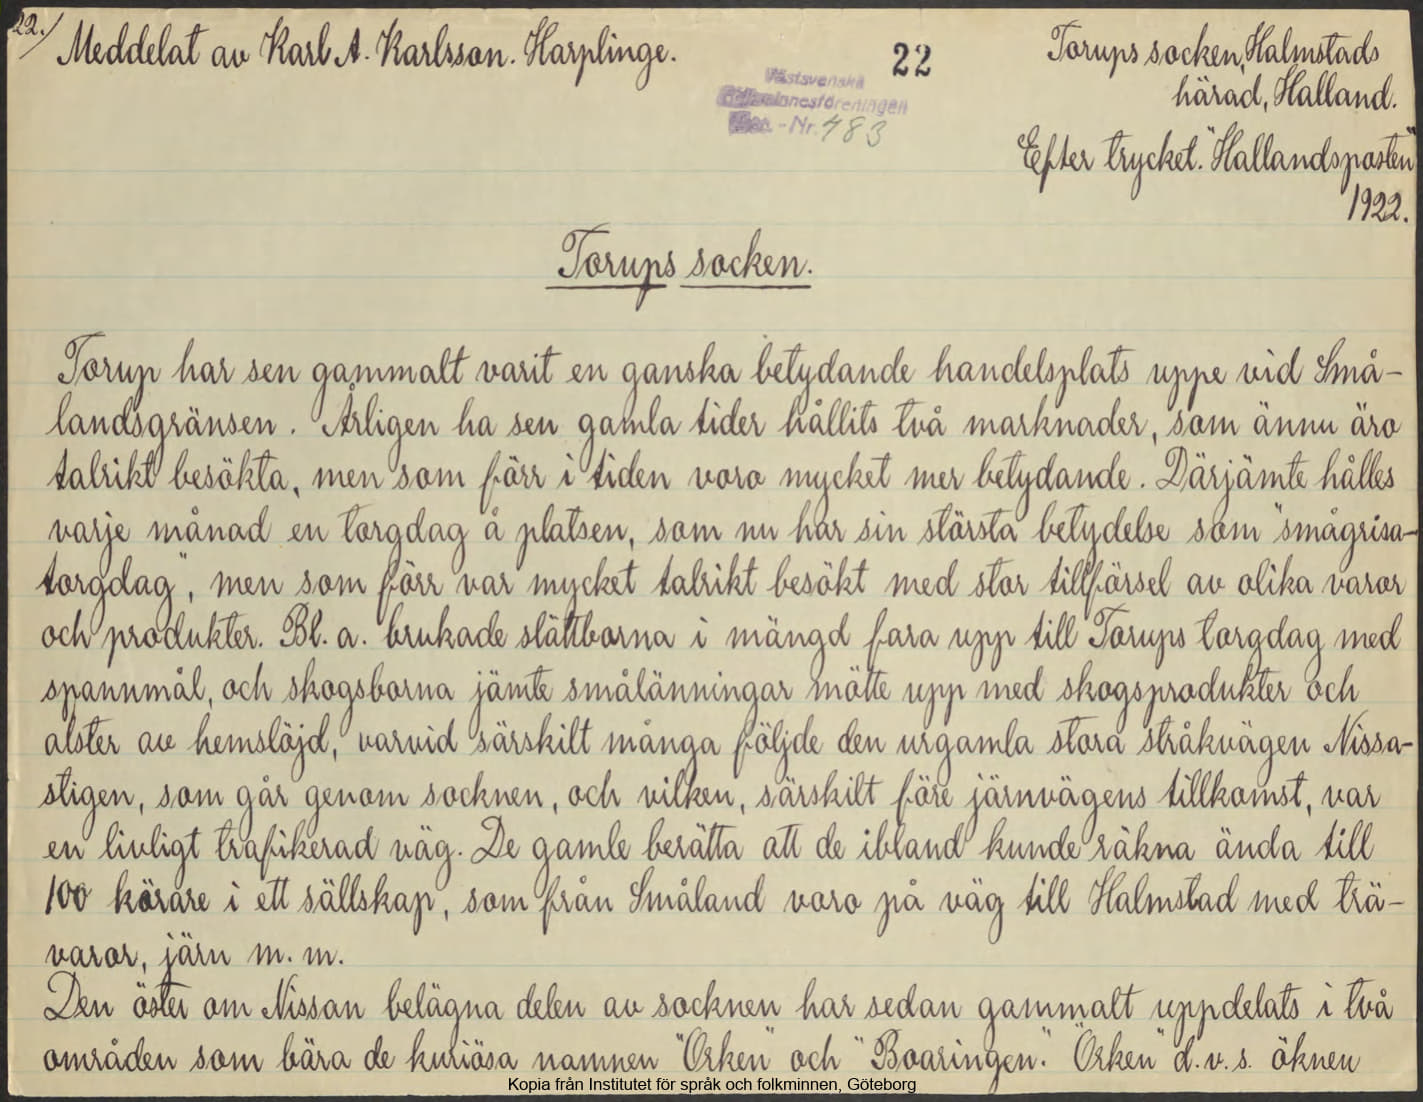 22./
Meddelat av Karl A. Karlsson. Harplinge.
22
Torups socken, Halmstads
härad, Halland.
Västsvenska
Folkminnesföreningen
-Nr. 483
Efter trycket. "Hallandsposten"
1922.
Torups socken.
Torup har sen gammalt varit en ganska betydande handelsplats uppe vid Små-
landsgränsen. Årligen ha sen gamla tider hållits två marknader, som ännu äro
talrikt besökta, men som förr i tiden voro mycket mer betydande. Därjämte hålles
varje månad en torgdag å platsen, som nu har sin största betydelse som "smågrisa-
torgdag", men som förr var mycket talrikt besökt med stor tillförsel av olika varor
och produkter. Bl. a. brukade slättborna i mängd fara upp till Torups torgdag med
spannmål, och skogsborna jämte smålänningar mötte upp med skogsprodukter och
alster av hemslöjd, varvid särskilt många följde den urgamla stora stråkvägen Nissa-
stigen, som går genom socknen, och vilken, särskilt före järnvägens tillkomst, var
en livligt trafikerad väg. De gamle berätta att de ibland kunde räkna ända till
100 körare i ett sällskap, som från Småland voro på väg till Halmstad med trä-
varor, järn m. m.
Den öster om Nissan belägna delen av socknen har sedan gammalt uppdelats i två
områden som bära de kuriösa namnen "Örken" och "Boaringen." "Örken" d.v.s. öknen
Kopia från Institutet för språk och folkminnen, Göteborg